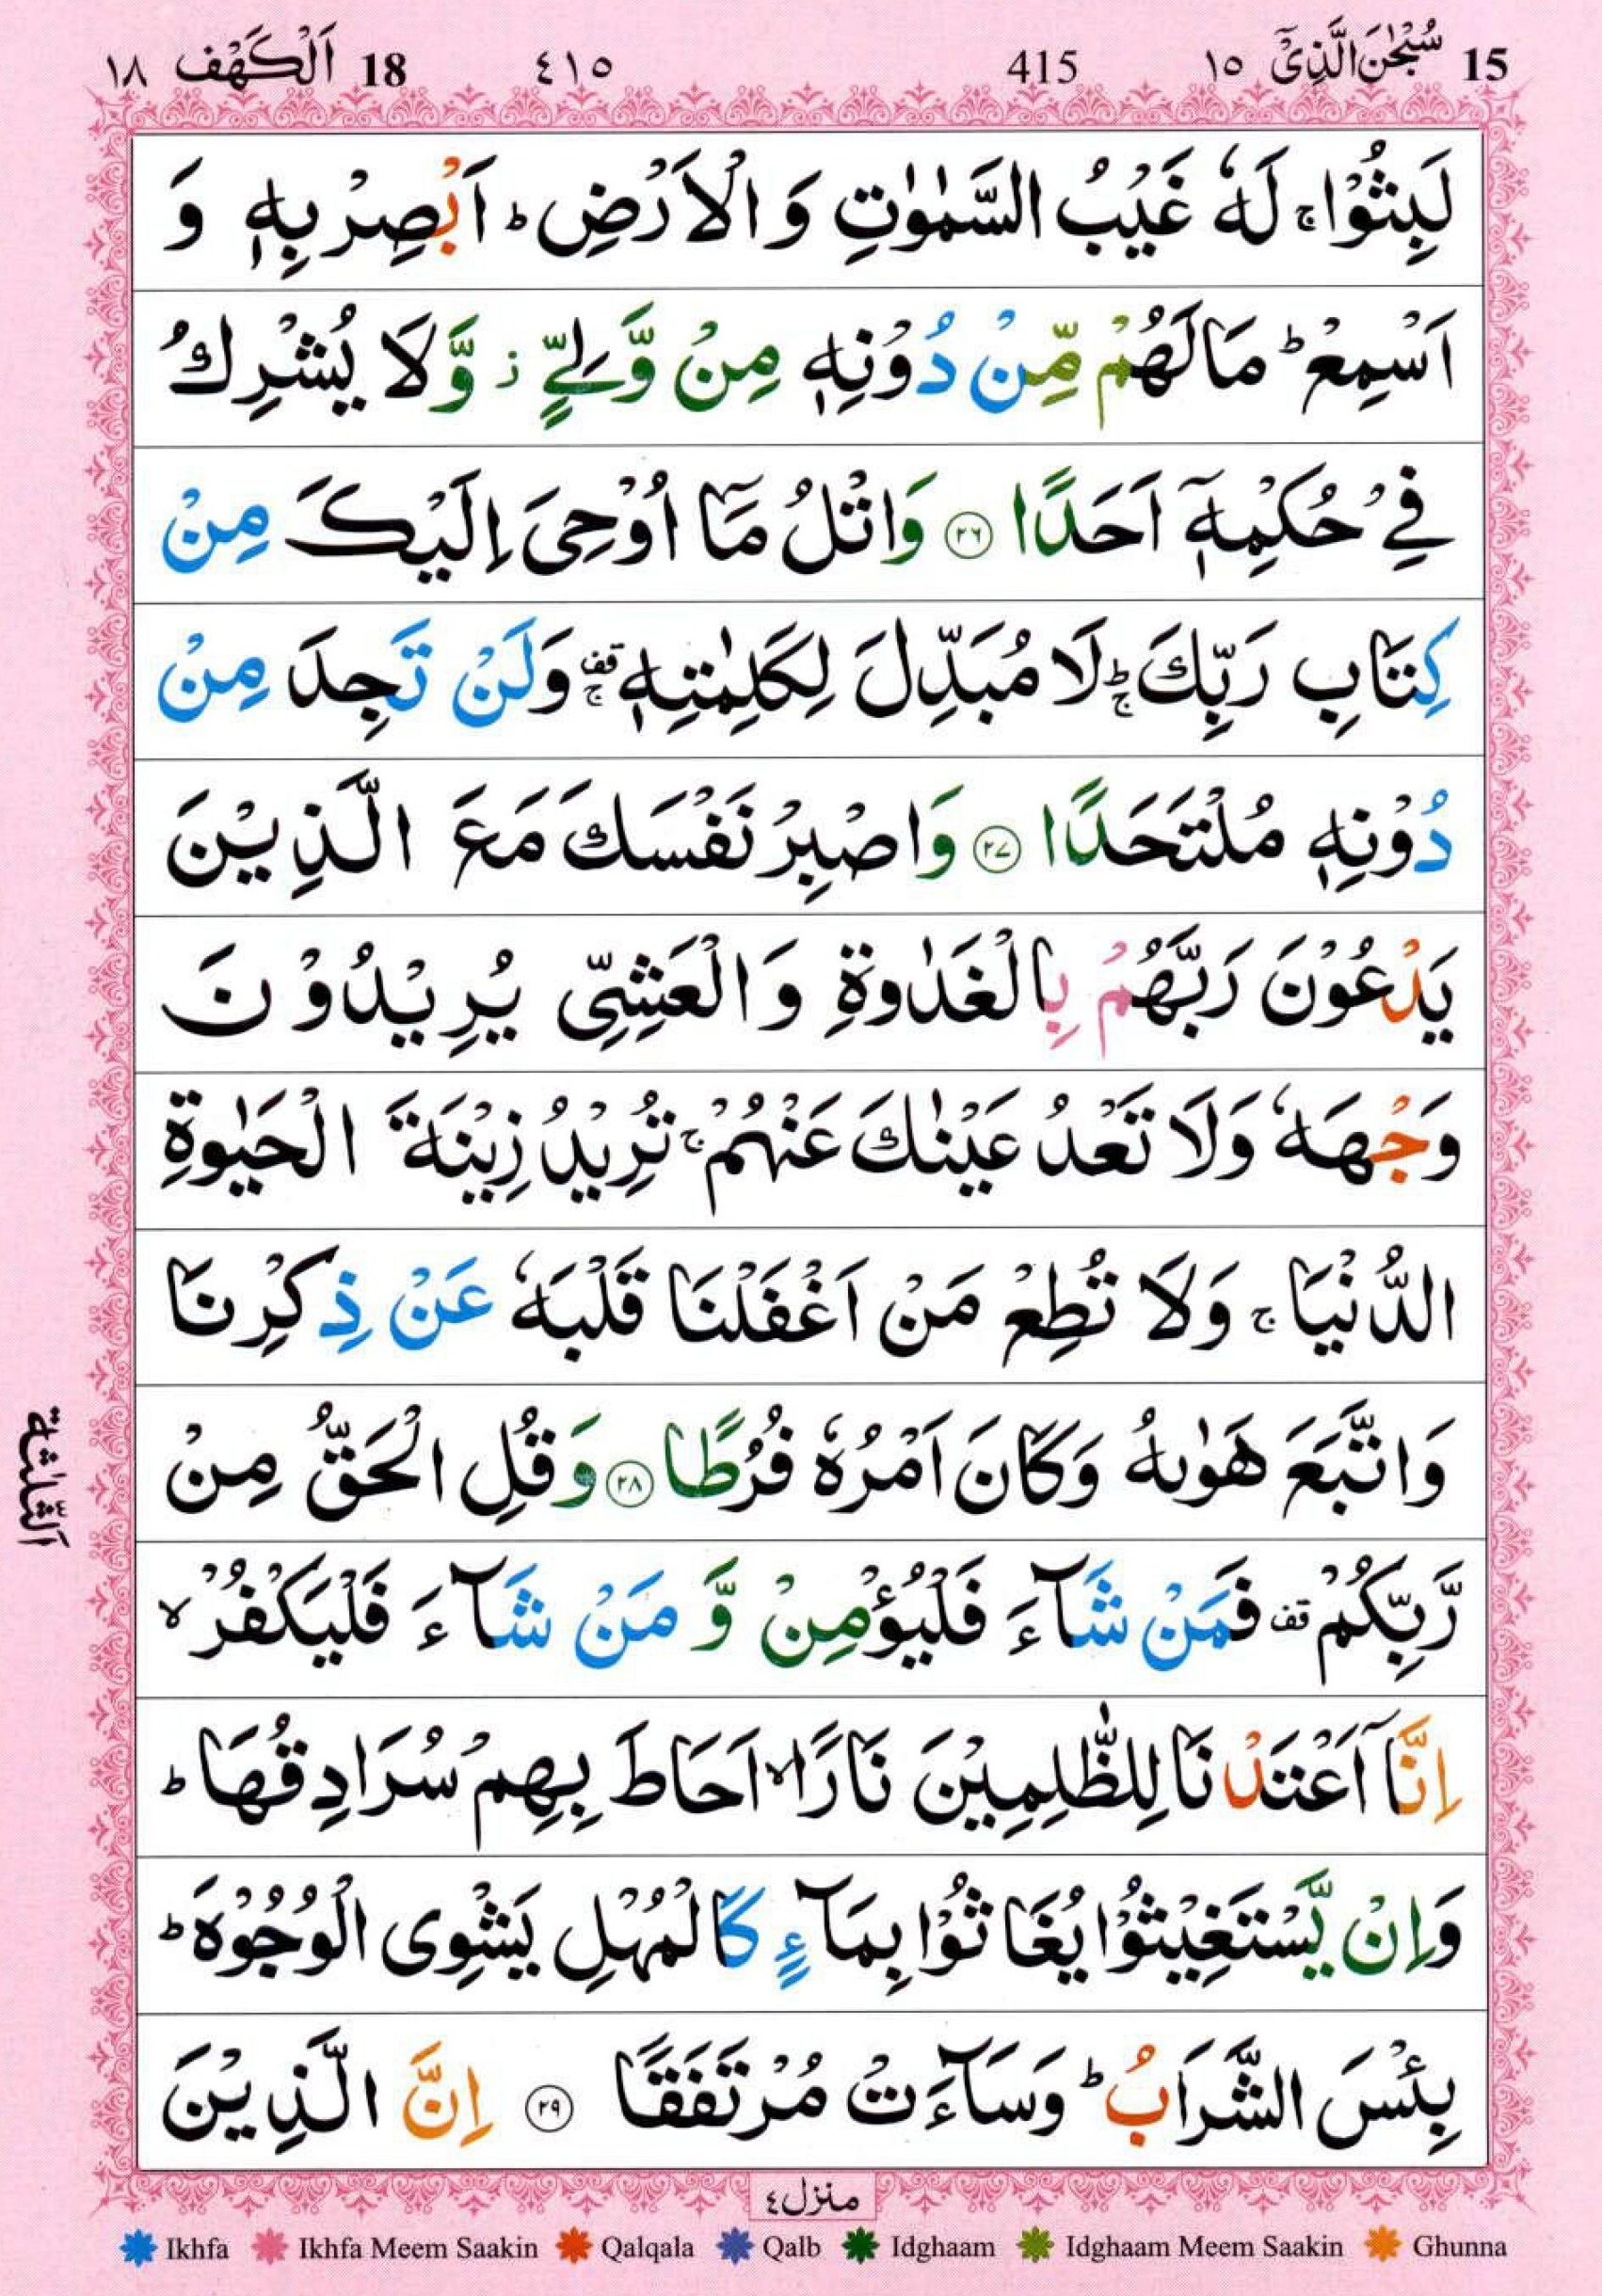 15 سُبْحٰنَ الَّذِیْۤ ١٥ 415 ٤١٥ 18 اَلْكَهْف ١٨
لَبِثُوْا ۚ لَهٗ غَیْبُ السَّمٰوٰتِ وَ الْاَرْضِ ؕ اَبْصِرْ بِهٖ وَ
اَسْمِعْ ؕ مَا لَهُمْ مِّنْ دُوْنِهٖ مِنْ وَّلِیٍّ ؗ وَّلَا یُشْرِكُ
فِیْ حُكْمِهٖۤ اَحَدًا ۝٢٦ وَاتْلُ مَاۤ اُوْحِیَ اِلَیْكَ مِنْ
كِتَابِ رَبِّكَ ؕۚ لَا مُبَدِّلَ لِكَلِمٰتِهٖ قف ۚ وَلَنْ تَجِدَ مِنْ
دُوْنِهٖ مُلْتَحَدًا ۝٢٧ وَاصْبِرْ نَفْسَكَ مَعَ الَّذِیْنَ
یَدْعُوْنَ رَبَّهُمْ بِالْغَدٰوةِ وَالْعَشِیِّ یُرِیْدُوْنَ
وَجْهَهٗ وَلَا تَعْدُ عَیْنٰكَ عَنْهُمْ ۚ تُرِیْدُ زِیْنَةَ الْحَیٰوةِ
الدُّنْیَا ۚ وَلَا تُطِعْ مَنْ اَغْفَلْنَا قَلْبَهٗ عَنْ ذِكْرِنَا
وَاتَّبَعَ هَوٰىهُ وَكَانَ اَمْرُهٗ فُرُطًا ۝٢٨ وَقُلِ الْحَقُّ مِنْ
رَّبِّكُمْ قف فَمَنْ شَآءَ فَلْیُؤْمِنْ وَّ مَنْ شَآءَ فَلْیَكْفُرْ ۙ
اِنَّاۤ اَعْتَدْنَا لِلظّٰلِمِیْنَ نَارًا ۙ اَحَاطَ بِهِمْ سُرَادِقُهَا ؕ
وَاِنْ یَّسْتَغِیْثُوْا یُغَاثُوْا بِمَآءٍ كَالْمُهْلِ یَشْوِی الْوُجُوْهَ ؕ
بِئْسَ الشَّرَابُ ؕ وَسَآءَتْ مُرْتَفَقًا ۝٢٩ اِنَّ الَّذِیْنَ
اَلثَّلٰثَة
منزل ٤
Ikhfa Ikhfa Meem Saakin Qalqala Qalb Idghaam Idghaam Meem Saakin Ghunna